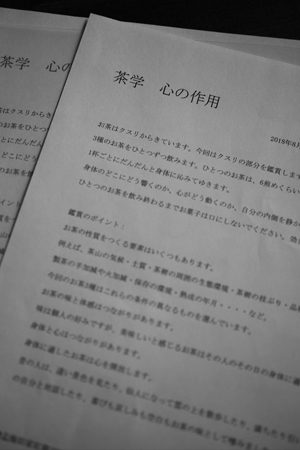 茶学 心の作用
2018年8月
お茶はクスリからきています。今回はクスリの部分を鑑賞しま
3種のお茶をひとつずつ飲みます。ひとつのお茶は、6煎めくらい
1杯ごとにだんだんと身体に沁みてゆきます。
身体のどこにどう響くのか、心がどう動くのか、自分の内側を静か
ひとつのお茶を飲み終わるまでお菓子は口にしないでください。効
鑑賞のポイント：
お茶の性質をつくる要素はいくつもあります。
例えば、茶山の気候・土質・茶樹の周囲の生態環境・茶樹の枝ぶり・品種
製茶の手加減や火加減・保存の環境・熟成の年月・・・・など。
今回のお茶3種はこれらの条件の異なるものを選んでいます。
お茶の味と体感はつながりがあります。
味は個人の好みですが、美味しいと感じるお茶はその人のその日の身体に適
身体と心はつながりがあります。
身体に適したお茶は心を開放します。
昔の人は、遠い景色を見たり、仙人になって雲の上を散歩したり、
の自分と対話したり、喜びも悲しみも空白もお茶の味として噛みました
茶学 心の